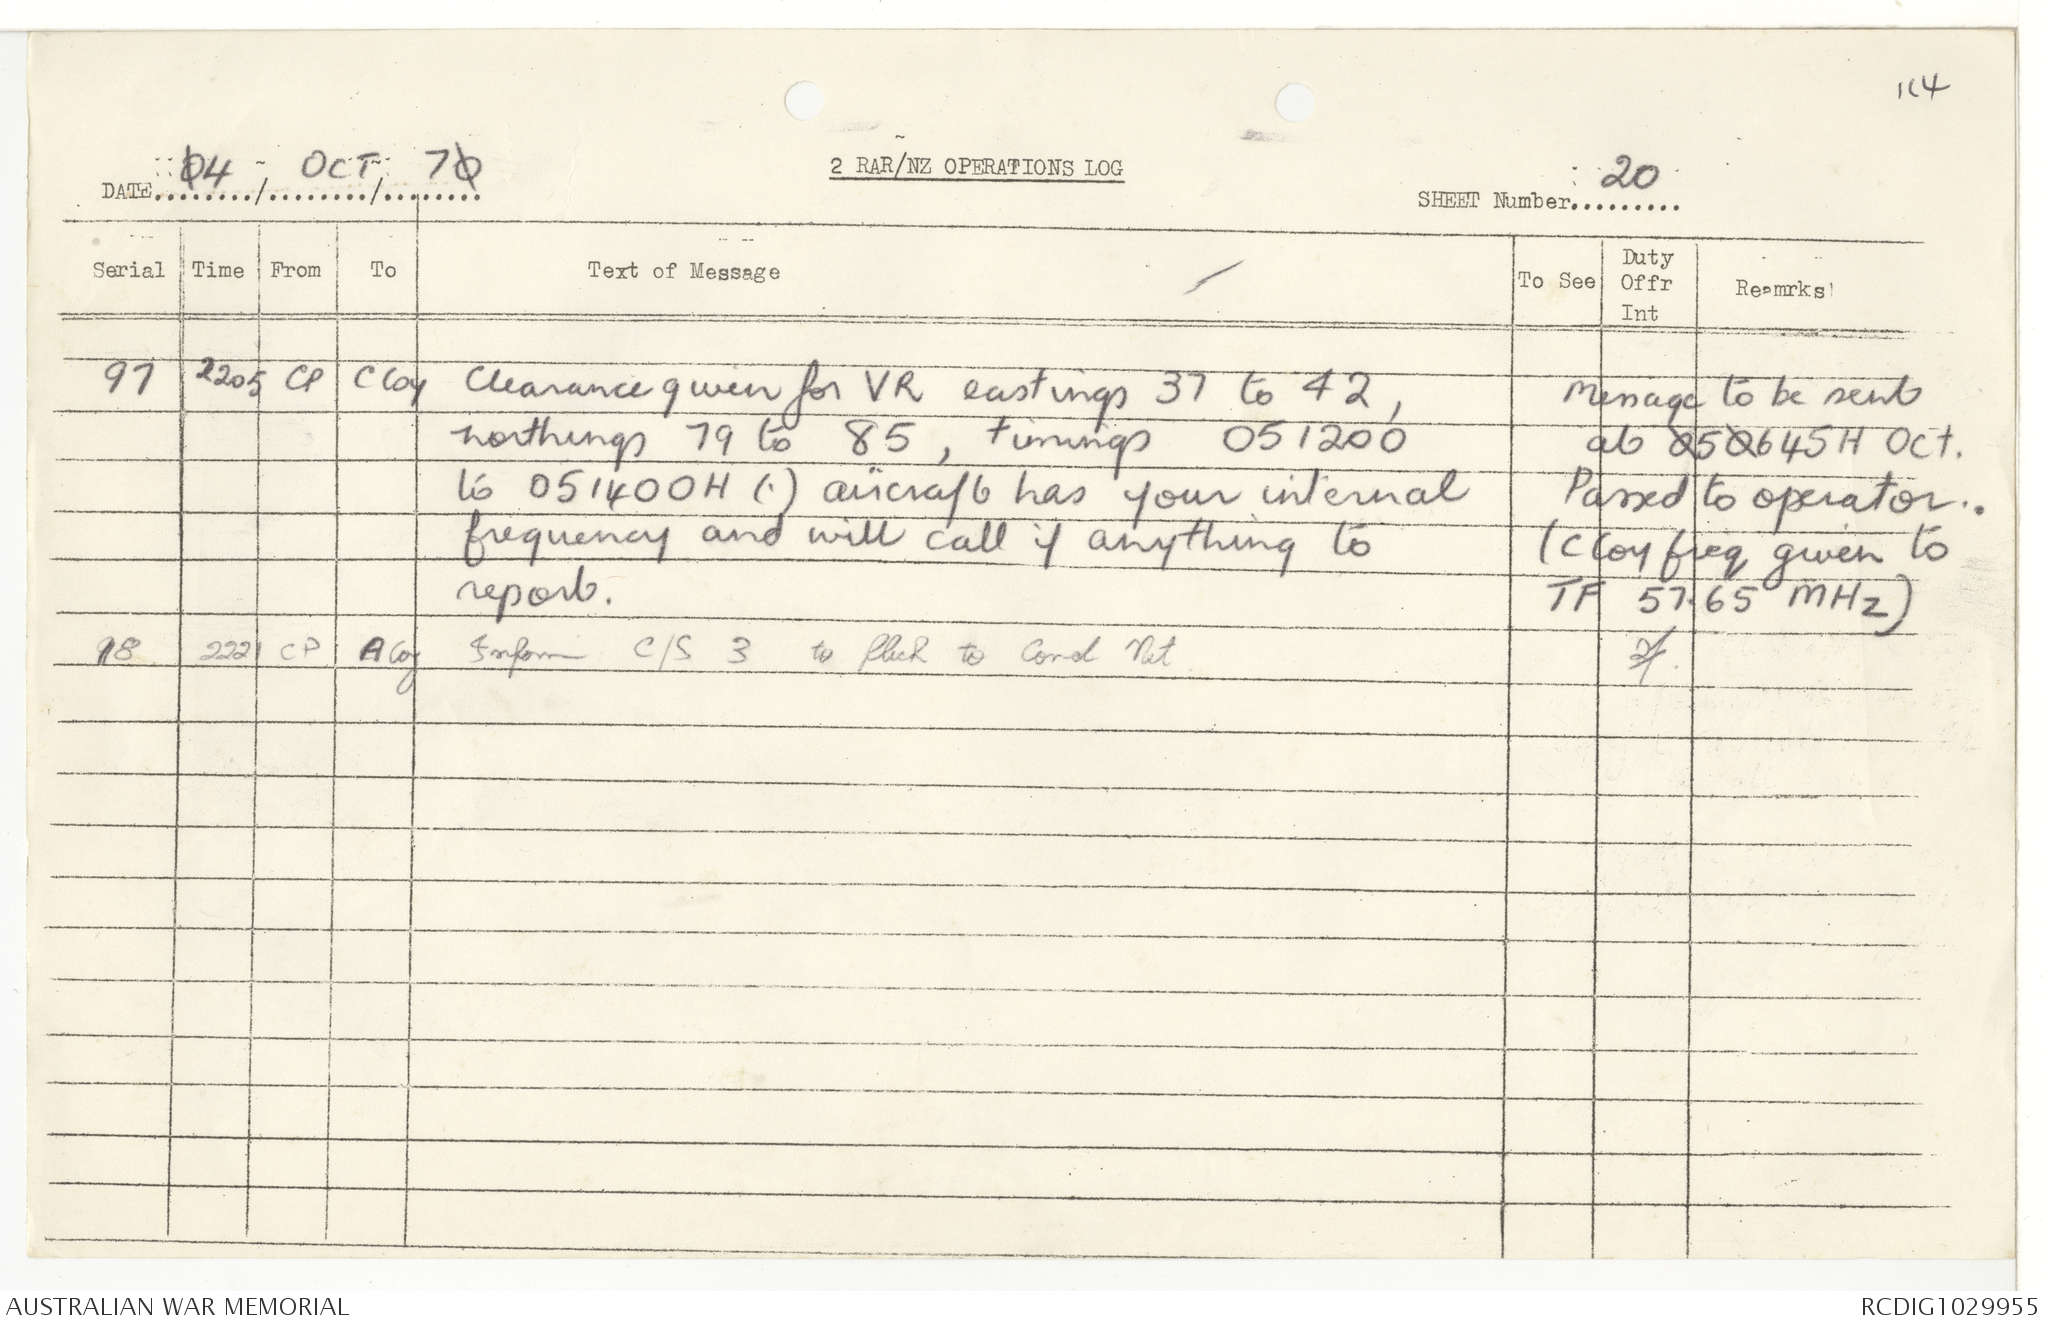 114
DATE 04 / OCT / 70
2 RAR/NZ OPERATIONS LOG
SHEET Number 20
Serial Time From To Text of Message To See Duty Offr Int Reamrks
97 2205 CP C Coy Clearance given for VR eastings 37 to 42, Message to be sent
northings 79 to 85, timings 051200 at 050645H Oct.
to 051400H (.) aircraft has your internal Passed to operator..
frequency and will call if anything to (C Coy freq given to
report. TF 57.65 MHz)
98 2221 CP A Coy Inform C/S 3 to flick to Comd Net
AUSTRALIAN WAR MEMORIAL
RCDIG1029955